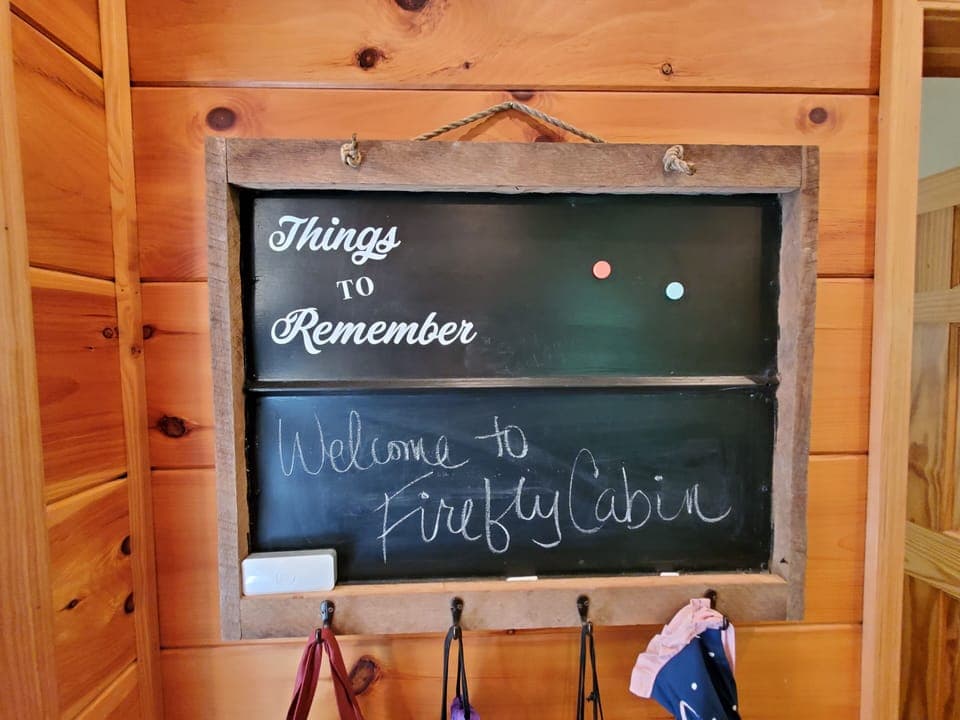 Things
TO
Remember
Welcome to
Firefly Cabin